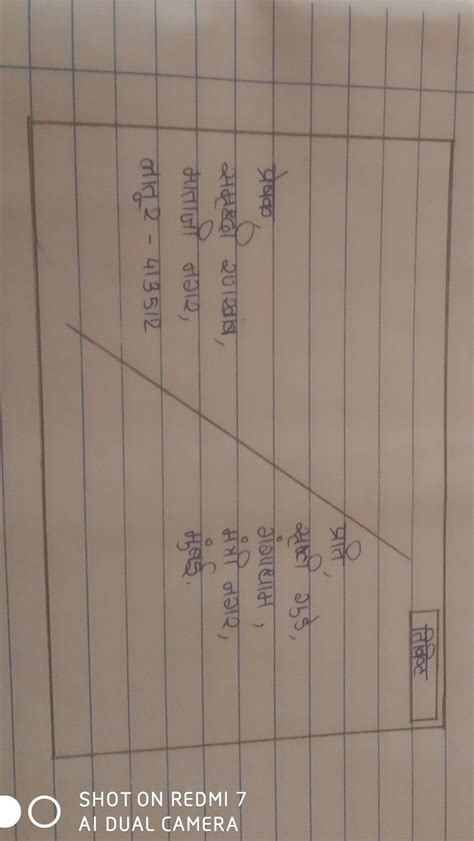 तिकिट
प्रति,
सृष्टी
गंगाधाम,
मंत्री नगर,
मुंबई.
प्रेषक,
समृध्दी
माताजी नगर,
लातूर - 413512
SHOT ON REDMI 7
AI DUAL CAMERA